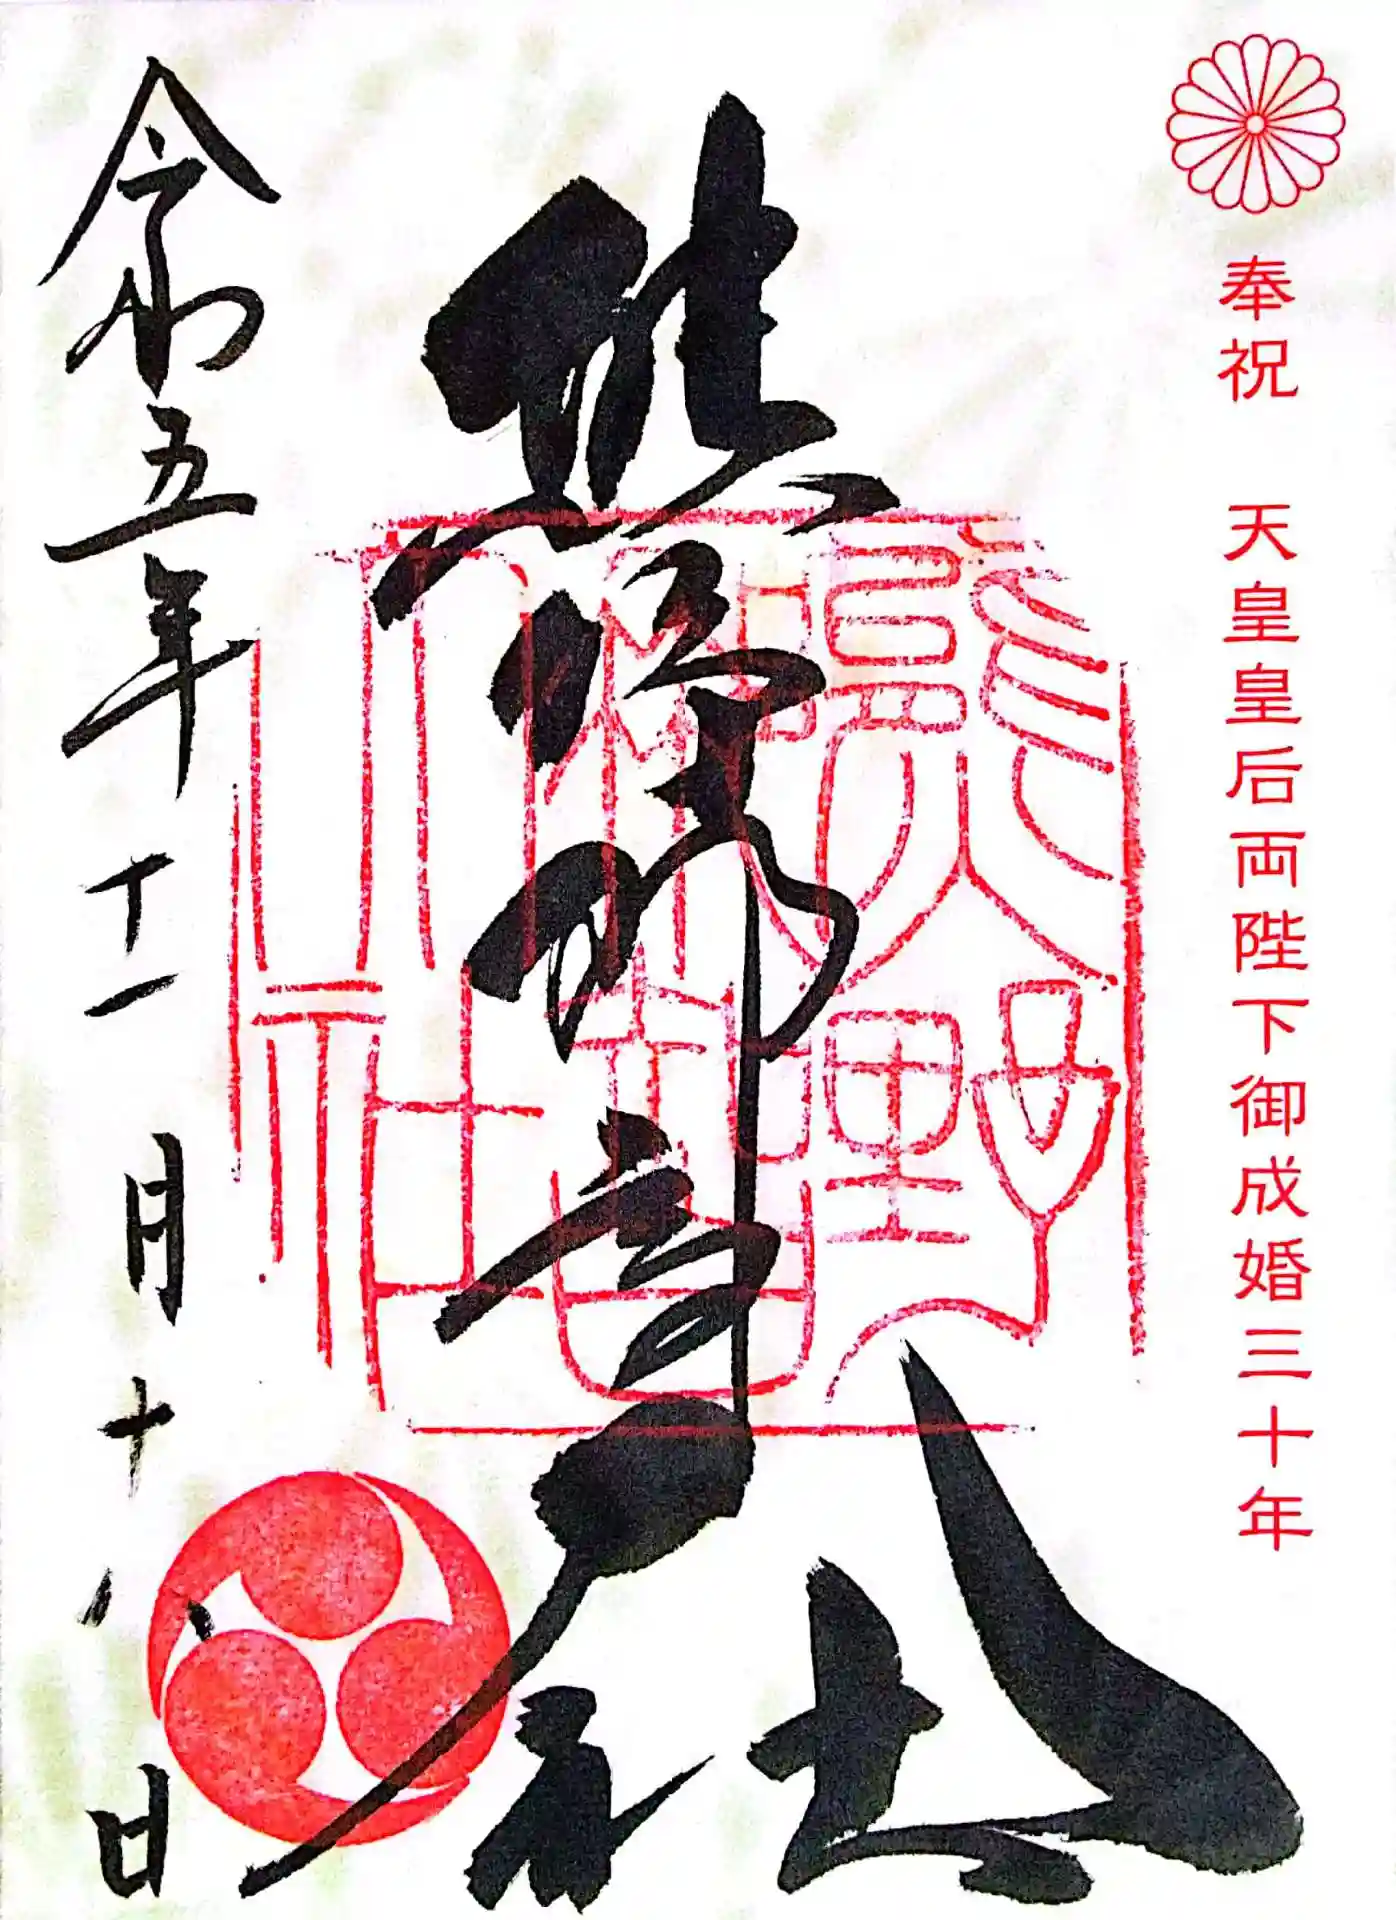 奉祝　天皇皇后両陛下御成婚三十年
熊野那智大社
熊野
那智
大社
令和五年十一月十八日